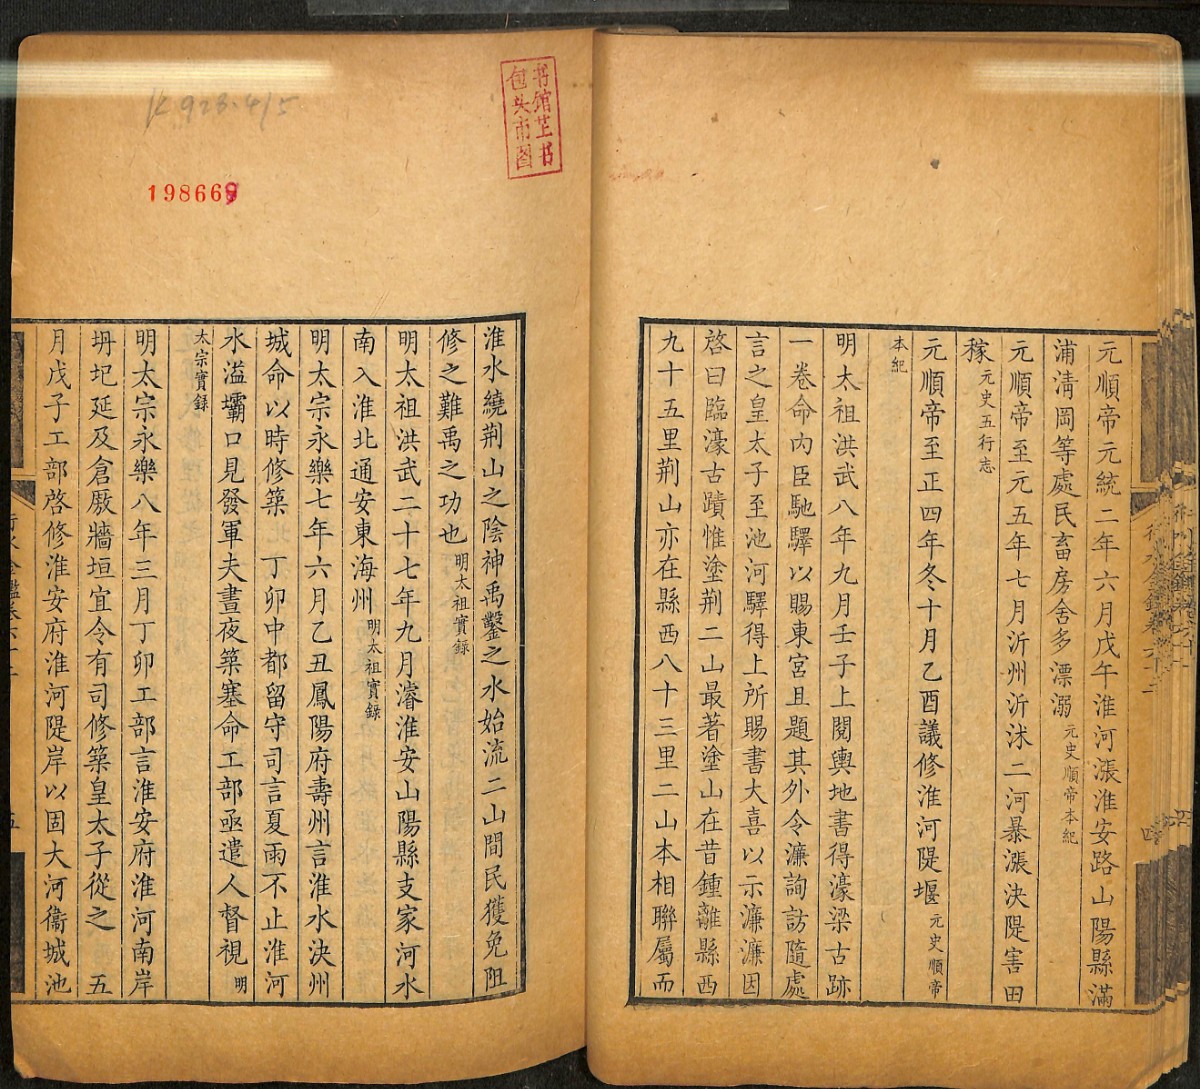 元順帝元統二年六月戊午淮河漲淮安路山陽縣滿
浦清岡等處民畜房舍多漂溺元史順帝本紀
元順帝至元五年七月沂州沂沭二河暴漲決隄害田
稼元史五行志
元順帝至正四年冬十月乙酉議修淮河隄堰元史順帝
本紀
明太祖洪武八年九月壬子上閱輿地書得濠梁古跡
一卷命內臣馳驛以賜東宮且題其外令濂詢訪隨處
言之皇太子至池河驛得上所賜書大喜以示濂濂因
啓曰臨濠古蹟惟塗荆二山最著塗山在昔鍾離縣西
九十五里荆山亦在縣西八十三里二山本相聯屬而
四
淮水繞荆山之陰神禹鑿之水始流二山間民獲免阻
修之難禹之功也明太祖實錄
明太祖洪武二十七年九月濬淮安山陽縣支家河水
南入淮北通安東海州明太祖實錄
明太宗永樂七年六月乙丑鳳陽府壽州言淮水決州
城命以時修築 丁卯中都留守司言夏雨不止淮河
水溢壩口見發軍夫晝夜築塞命工部亟遣人督視明
太宗實錄
明太宗永樂八年三月丁卯工部言淮安府淮河南岸
坍圮延及倉厫牆垣宜令有司修築皇太子從之 五
月戊子工部啓修淮安府淮河隄岸以固大河衞城池
五
书馆芷书
包头市图
K928.4/5
198669